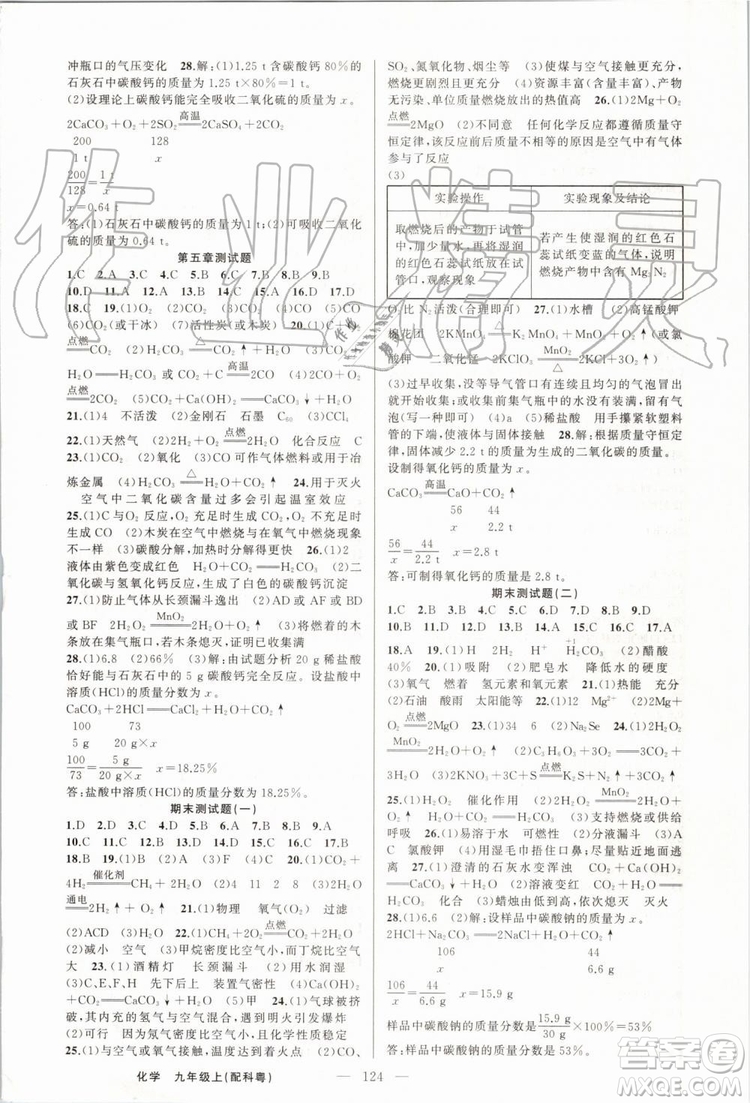 冲瓶口的气压变化　28.解:(1)1.25 t含碳酸钙80%的
石灰石中碳酸钙的质量为1.25 t×80%=1 t。
(2)设理论上碳酸钙能完全吸收二氧化硫的质量为x。
2CaCO₃+O₂+2SO₂ 高温 2CaSO₄+2CO₂
200　128
1 t　x
200/128=1 t/x
x=0.64 t
答:(1)石灰石中碳酸钙的质量为1 t;(2)可吸收二氧化
硫的质量为0.64 t。
第五章测试题
1.C　2.A　3.C　4.D　5.B　6.B　7.B　8.D　9.D
10.D　11.D　12.D　13.B　14.C　15.B　16.A　17.D
18.D　19.B　20.(1)CO　(2)CO₂　(3)CO₂　(4)CO₂
(5)CO　(6)CO₂(或干冰)　(7)活性炭(或木炭)　C+
O₂ 点燃 CO₂　C+2CuO △ 2Cu+CO₂↑　CO₂+
H₂O══H₂CO₃　CO₂+C 高温 2CO
21.(1)4　不活泼　(2)金刚石　石墨　C₆₀　(3)CCl₄
22.(1)天然气　(2)2H₂+O₂ 点燃 2H₂O　化合反应
23.(1)O₂　(2)氧化　(3)CO可作气体燃料或用于冶
炼金属　(4)H₂CO₃ △ H₂O+CO₂↑　24.用于灭火
空气中二氧化碳含量过多会引起温室效应
25.(1)O₂充足时生成CO₂,O₂不充足时O₂不充足时
生成CO　(2)木炭在空气中燃烧与在氧气中燃烧现象
不一样　(3)碳酸分解,加热时分解更快　26.(1)2
液体由紫色变成红色　H₂O+CO₂══H₂CO₃　(2)二
氧化碳与氢氧化钙反应,生成了白色的碳酸钙沉淀
27.(1)防止气体从长颈漏斗逸出　(2)AD或AF或BD
或BF　2H₂O₂ MnO₂ 2H₂O+O₂↑　(3)将燃着的木
条放在集气瓶口,若木条熄灭,证明已收集满
28.(1)6.8　(2)66%　(3)解:由试题分析20 g稀盐酸
恰好能与石灰石中的5 g碳酸钙完全反应。设盐酸中
溶质(HCl)的质量分数为x。
CaCO₃+2HCl══CaCl₂+H₂O+CO₂↑
100　73
5 g　20 g×x
100/73=5 g/(20 g×x)　x=18.25%
答:盐酸中溶质(HCl)的质量分数为18.25%。
期末测试题(一)
1.D　2.D　3.C　4.A　5.B　6.A　7.C　8.D　9.D
10.C　11.C　12.B　13.B　14.B　15.B　16.B　17.D
18.C　19.B　20.(1)CO₂+
4H₂ 催化剂 CH₄+2H₂O　(2)4　11　2　8　(3)2H₂O
通电 2H₂↑+O₂↑　21.(1)物理　氧气(O₂)　过滤
(2)ACD　(3)2H₂+O₂ 点燃 2H₂O　22.(1)吸收
(2)减小　空气　(3)甲烷密度比空气小,而丁烷密度比
空气大　23.(1)酒精灯　长颈漏斗　(2)用水润湿
(3)C、E、F、H　先下后上　装置气密性　(4)Ca(OH)₂
+CO₂══CaCO₃↓+H₂O　(5)甲　24.(1)气球被挤
破,其内充的氢气与空气混合,遇到明火引发爆炸
(2)可行　因为氦气密度比空气小,且化学性质稳定
25.(1)减少温室气体CO₂的排放　温室效应　(2)有
SO₂、氮氧化物、烟尘等　(3)使煤与空气接触更充分,
燃烧更剧烈且充分　(4)资源丰富(分布广)、产物
无污染、单位质量燃烧放出的热值高　26.(1)2Mg+O₂
点燃 2MgO　(2)不同意　任何化学反应都遵循质量守
恒定律,该反应前后质量不相等的原因是空气中有气体
参与了反应
(3)
实验操作　实验现象及结论
取燃烧后的产物于试管
中,加少量水,再将湿润
的红色石蕊试纸放在试
管口,观察现象
若产生使湿润的红色石
蕊试纸变蓝的气体,说明
燃烧产物中含有Mg₃N₂
O₂比N₂活泼(合理即可)　27.(1)水槽　(2)高锰酸钾
棉花团　2KMnO₄ △ K₂MnO₄+MnO₂+O₂↑(或氯
酸钾　二氧化锰　2KClO₃ MnO₂ △ 2KCl+3O₂↑)
(3)过早收集,没等导气管口有连续且均匀的气泡冒出
就开始收集(或收集前集气瓶中的水没有装满,留有空
气)(写一种即可)　(4)a　(5)稀盐酸　用手攥紧软塑料
管的下端,使液体与固体接触　28.解:根据质量守恒定
律,减少的2.2 t的质量为生成的二氧化碳的质量。
设制得氧化钙的质量为x。
CaCO₃ 高温 CaO+CO₂↑
56　44
x　2.2 t
56/x=44/2.2 t　x=2.8 t
答:可制得氧化钙的质量为2.8 t。
期末测试题(二)
1.C　2.B　3.B　4.D　5.D　6.D　7.C　8.B　9.D
10.B　11.A　12.D　13.B　14.B　15.D　16.D　17.D
18.A　19.(1)H　H₂　H⁺　H₂O　(2)醋酸
40%　20.(1)吸附　(2)肥皂水　降低水的硬度
(3)氧气　燃着　氢元素和氧元素　21.(1)热能　充分
(2)石油　酸雨　太阳能等　22.(1)12　(2)Mg²⁺　(3)2Mg+
O₂ 点燃 2MgO　23.(1)34　(2)Na₂Se　24.(1)2H₂O₂
MnO₂ 2H₂O+O₂↑　(2)C₃H₆O₃+3O₂ 点燃 3CO₂
+3H₂O　(3)2KNO₃+3C+S══K₂S+N₂↑+3CO₂↑
25.(1)H₂O₂　催化作用　(2)2H₂O₂ MnO₂
2H₂O+O₂↑　(3)CO₂　(4)H₂　(5)支持燃烧或供给
呼吸　26.(1)易溶于水　可燃性　(2)分液漏斗
(3)a　氯酸钾　(4)用湿毛巾捂住口鼻;向地势高处逃
离　27.(1)澄清的石灰水变浑浊　Ca(OH)₂+CO₂══
CaCO₃↓+H₂O　(3)蜡烛由低到高依次熄灭　灭火
28.(1)6.6　(2)解:设样品中碳酸钠的质量为x。
2HCl+Na₂CO₃══2NaCl+H₂O+CO₂↑
106　44
x　6.6 g
106/x=44/6.6 g　x=15.9 g
样品中碳酸钠的质量分数是15.9 g/30 g×100%=53%。
答:样品中碳酸钠的质量分数是53%。
化学　九年级上(配科粤)　— 124 —
作业精灵
答案圈